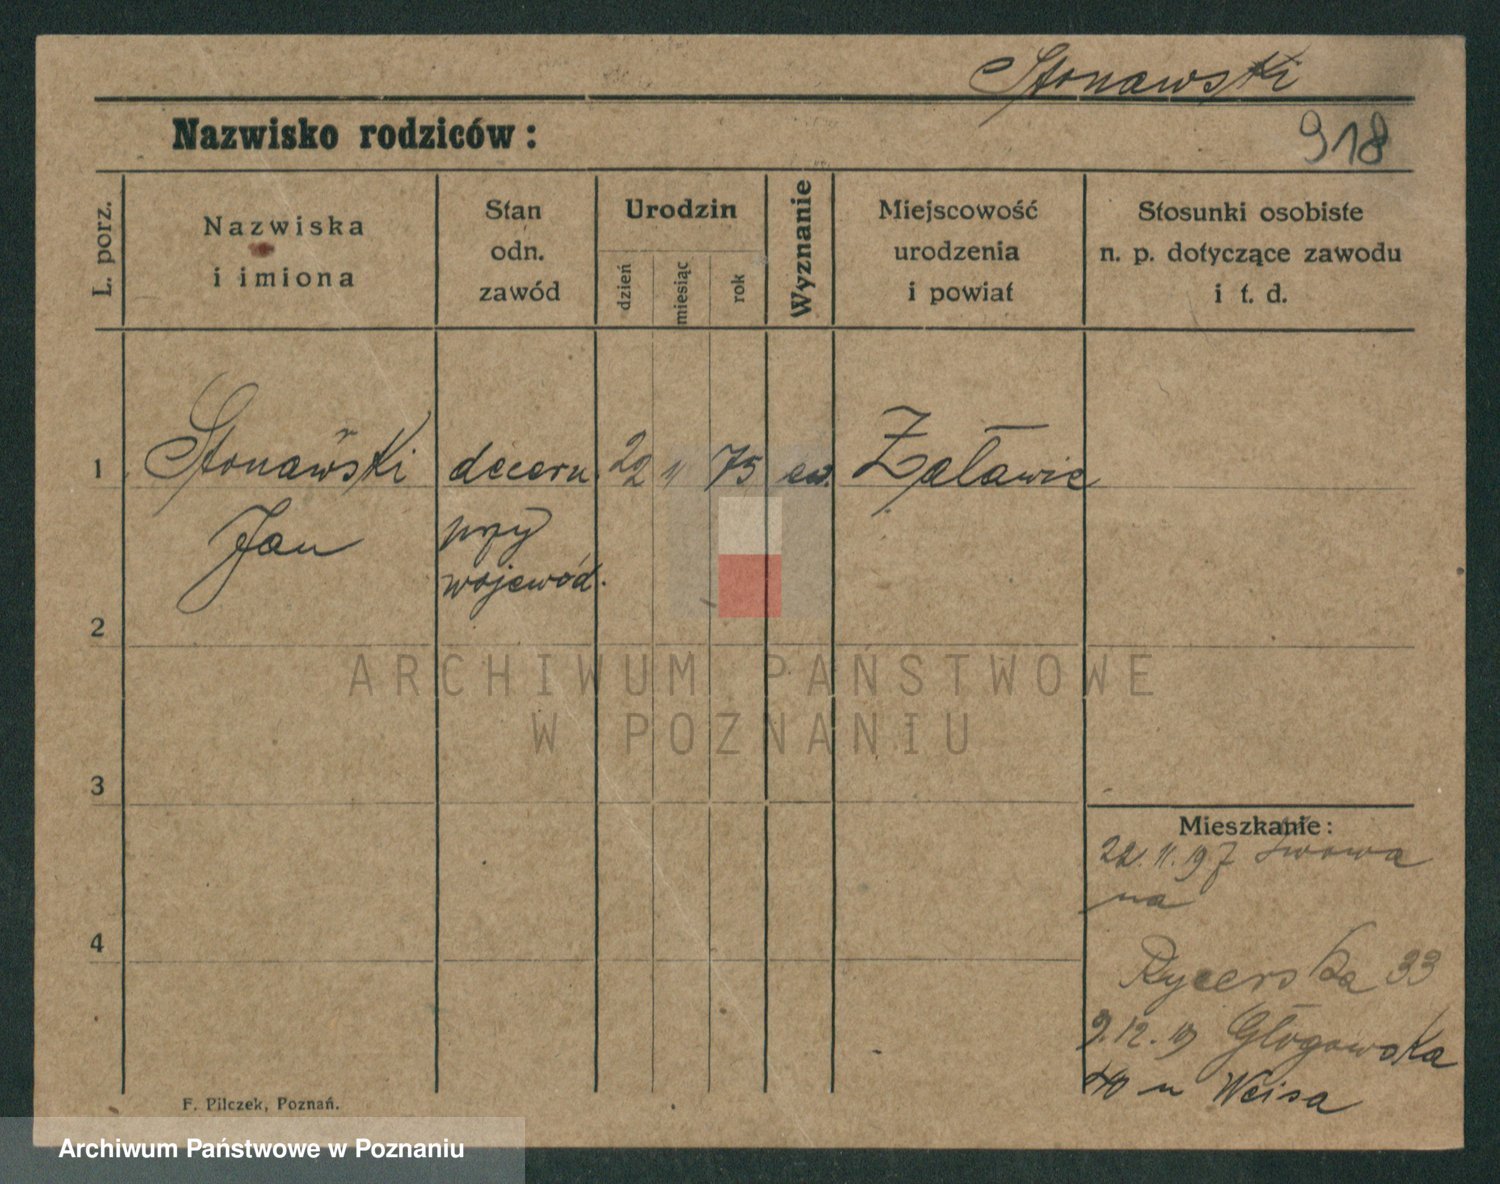 Stonawski
Nazwisko rodziców:
918
L. porz.
Nazwiska
i imiona
Stan
odn.
zawód
Urodzin
dzień
miesiąc
rok
Wyznanie
Miejscowość
urodzenia
i powiat
Stosunki osobiste
n. p. dotyczące zawodu
i t. d.
1 Stonawski decern. 22 11 75 ew.
Jan przy
wojewód.
2
ARCHIWUM PAŃSTWOWE
W POZNANIU
3
Mieszkanie:
22. 11. 19 z Lwowa
na
4
Rycerska 33
9. 12. 19 Głogowska
110 u Weisa
F. Pilczek, Poznań.
Archiwum Państwowe w Poznaniu